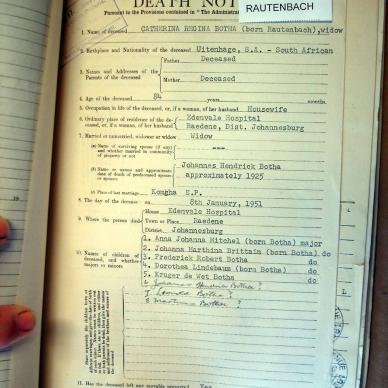 DEATH NOT
RAUTENBACH
Pursuant to the Provisions contained in "The Administra
1. Name of deceased CATHERINA REGINA BOTHA (born Rautenbach), widow
2. Birthplace and Nationality of the deceased Uitenhage, S.A. - South African
3. Names and Addresses of the Parents of the deceased
Father Deceased
Mother Deceased
4. Age of the deceased 84 years months.
5. Occupation in life of the deceased, or, if a woman, of her husband Housewife
6. Ordinary place of residence of the deceased, or, if a woman, of her husband
Edenvale Hospital
Raedene, Dist. Johannesburg
7. Married or unmarried, widower or widow Widow
(a) Name of surviving spouse (if any) and whether married in community of property or not ---
(b) Name or names and approximate date of death of predeceased spouse or spouses
Johannes Hendrick Botha
approximately 1925
(c) Place of last marriage Komgha E.P.
8. The day of the decease on 8th January, 1951
9. Where the person died
House Edenvale Hospital
Town or Place Raedene
District Johannesburg
10. Names of children of deceased, and whether majors or minors
1. Anna Johanna Mitchel (born Botha) major
2. Johanna Marthina Brittain (born Botha) do
3. Frederick Robert Botha do
4. Dorothea Lindebaum (born Botha) do
5. Kruger de Wet Botha do
6 Johannes Botha ?
7 Botha ?
8 Martinus Botha ?
11. Has the deceased left any movable property Yes